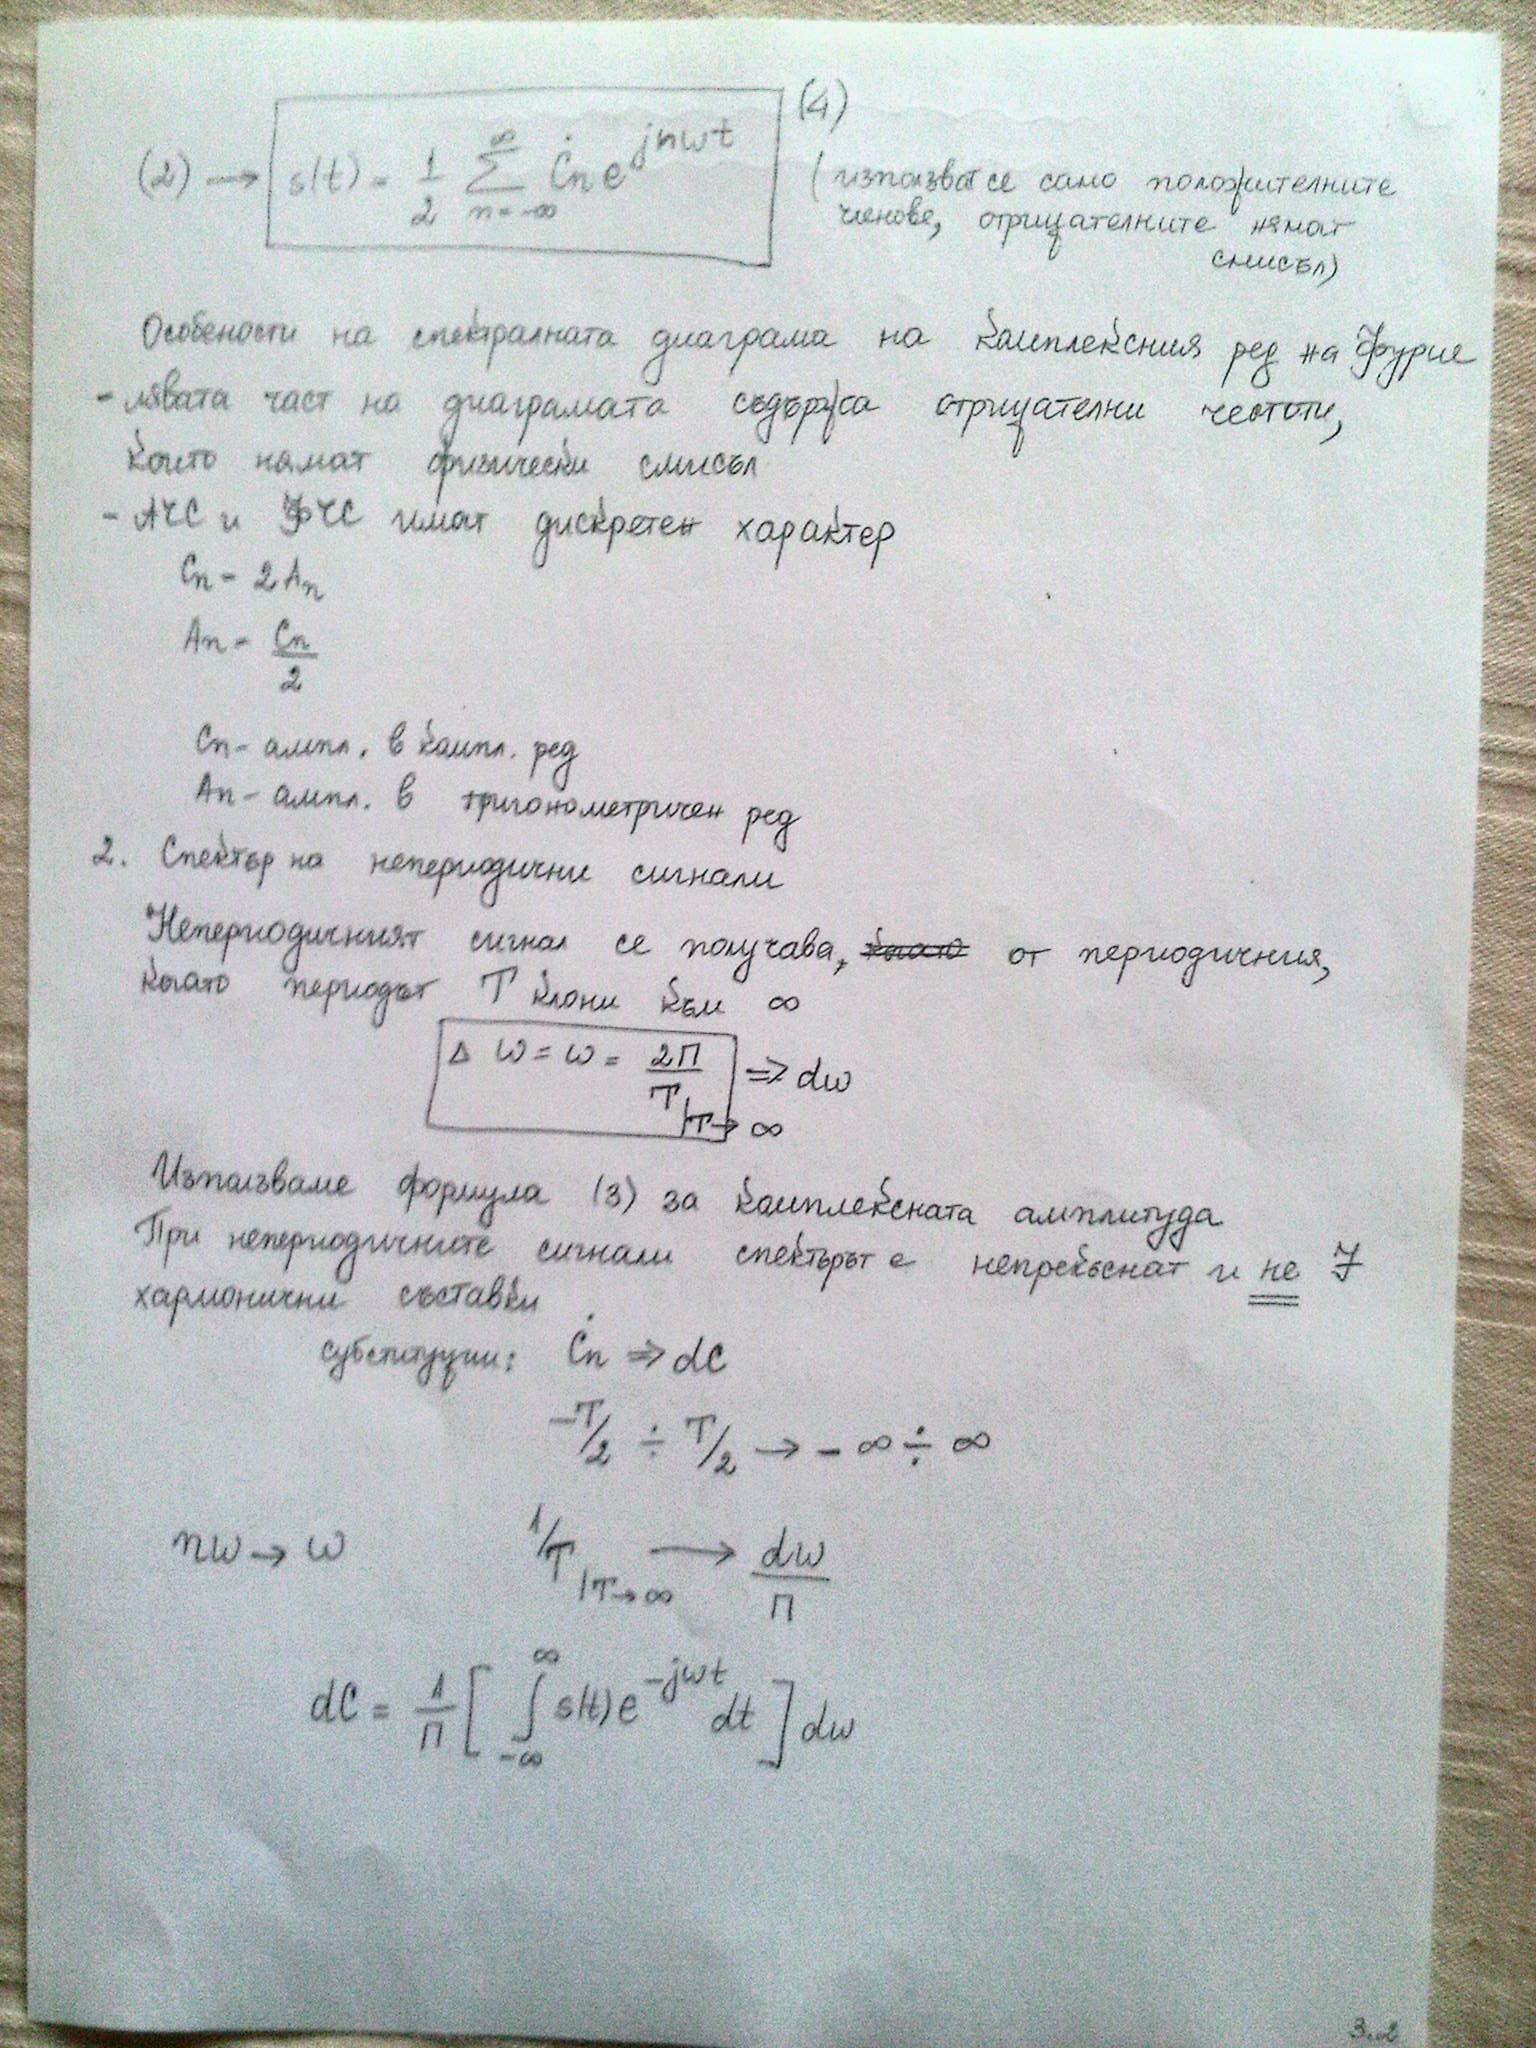 (2) → s(t) = 1/2 ∑_{n=-∞}^{∞} Ċn e^{jnωt} (4)
(използват се само положителните
членове, отрицателните нямат
смисъл)
Особености на спектралната диаграма на комплексния ред на Фурие
- лявата част на диаграмата съдържа отрицателни честоти,
които нямат физически смисъл
- АЧС и ФЧС имат дискретен характер
Cn = 2An
An = Cn/2
Cn - ампл. в компл. ред
An - ампл. в тригонометричен ред
2. Спектър на непериодични сигнали
Непериодичният сигнал се получава, когато от периодичния,
когато периодът T клони към ∞
Δ ω = ω = 2П/T |T→∞ => dω
Използваме формула (3) за комплексната амплитуда
При непериодичните сигнали спектърът е непрекъснат и не ∃
хармонични съставки
субституции: Ċn => dC
-T/2 ÷ T/2 → -∞ ÷ ∞
nω → ω 1/T |T→∞ → dω/П
dC = 1/П [ ∫_{-∞}^{∞} s(t) e^{-jωt} dt ] dω
3..2